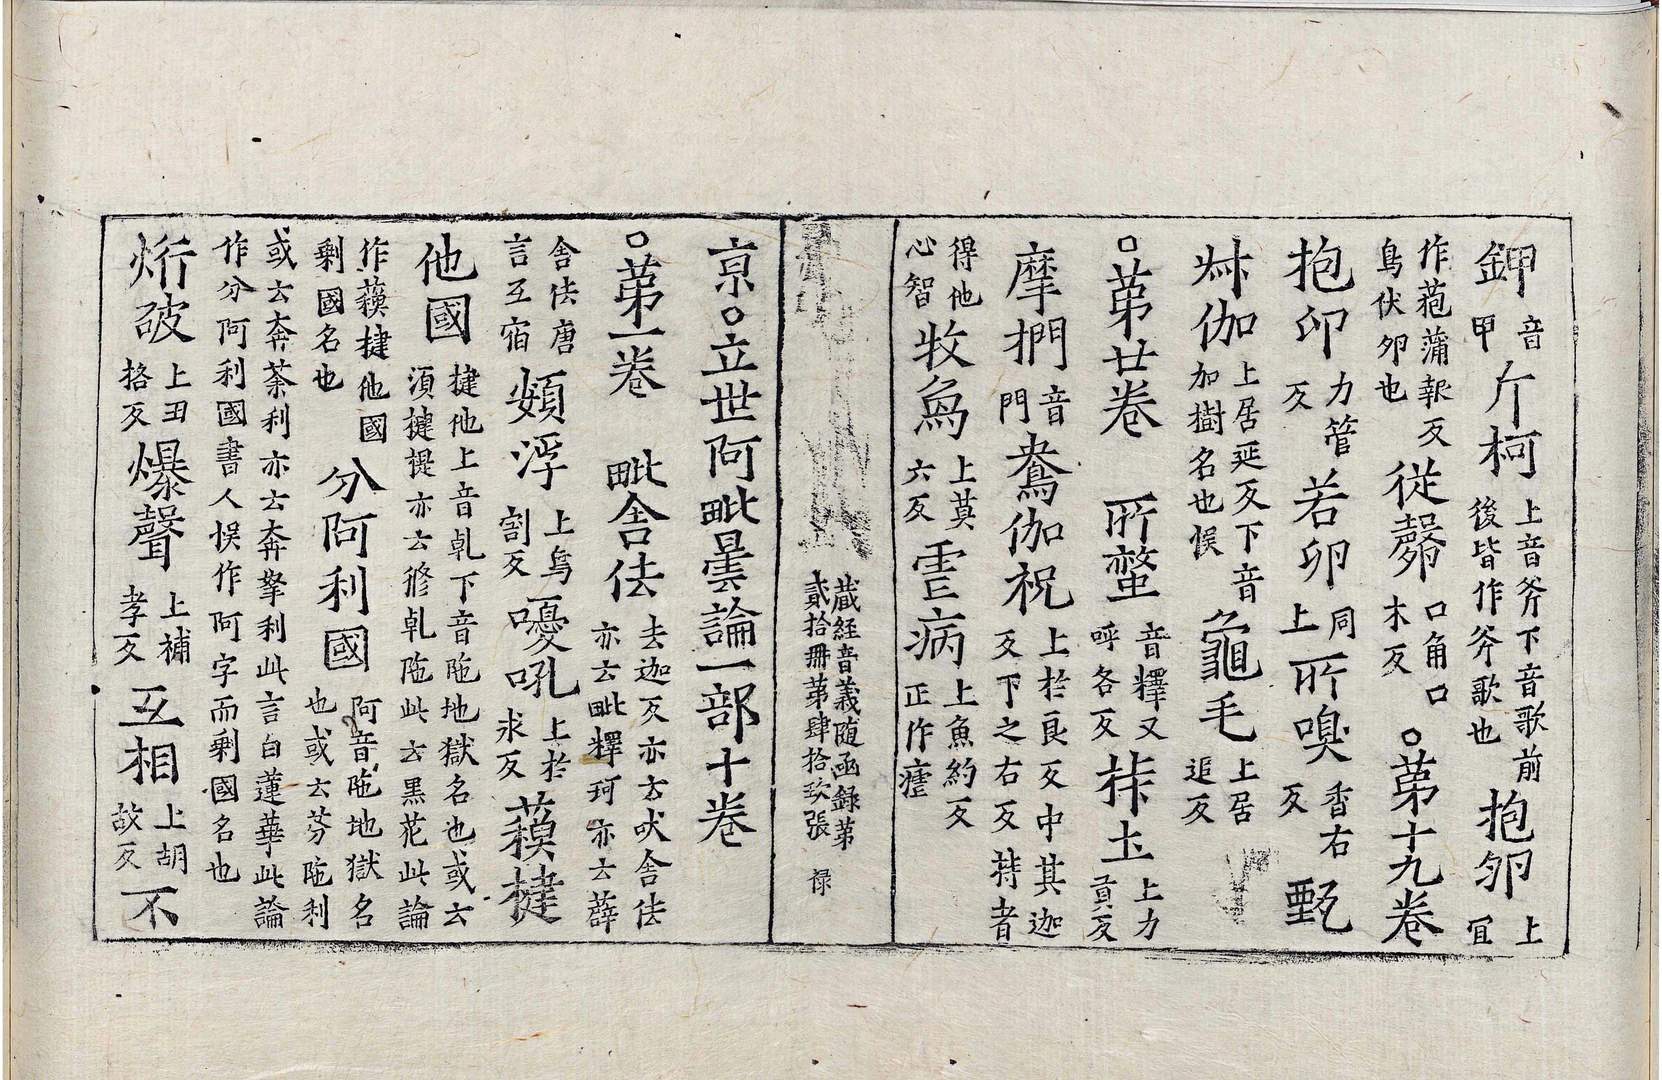 鉀音甲 斤柯上音斧下音歌前後皆作斧歌也 抱卵上宜
作菢蒲報反鳥伏卵也 從㱿口角口木反 ○苐十九卷
抱卵力管反 若卵同上 所嗅香右反 甄
叔伽上居延反下音加樹名也悮 龜毛上居追反
○苐廿卷 所螫音釋又呼各反 㭊土上力貢反
摩捫音門 鴦伽祝上於良反中其迦反下之右反䅭者
得他心智 牧𩿇上莫六反 䨓病上魚約反正作瘧
藏経音義随函録苐貳拾冊苐肆拾玖張 禄
京○立世阿毗曇論一部十卷
○苐一卷 毗舎佉去迦反亦云吠舎佉亦云毗釋珂亦云薜
舎佉唐言互宿 頞浮上烏割反 嚘吼上於求反 䕼揵
他國揵他上音乹下音陁地獄名也或云湏揵提亦云修乹陁此云黒花此論
作䕼揵他國剩國名也 分阿利國阿音陁地獄名也或云芬陁利
或云奔荼利亦云奔拏利此言白蓮華此論
作分阿利國書人悮作阿字而剩國名也
烆破上丑格反 爆聲上補孝反 互相上胡故反 不